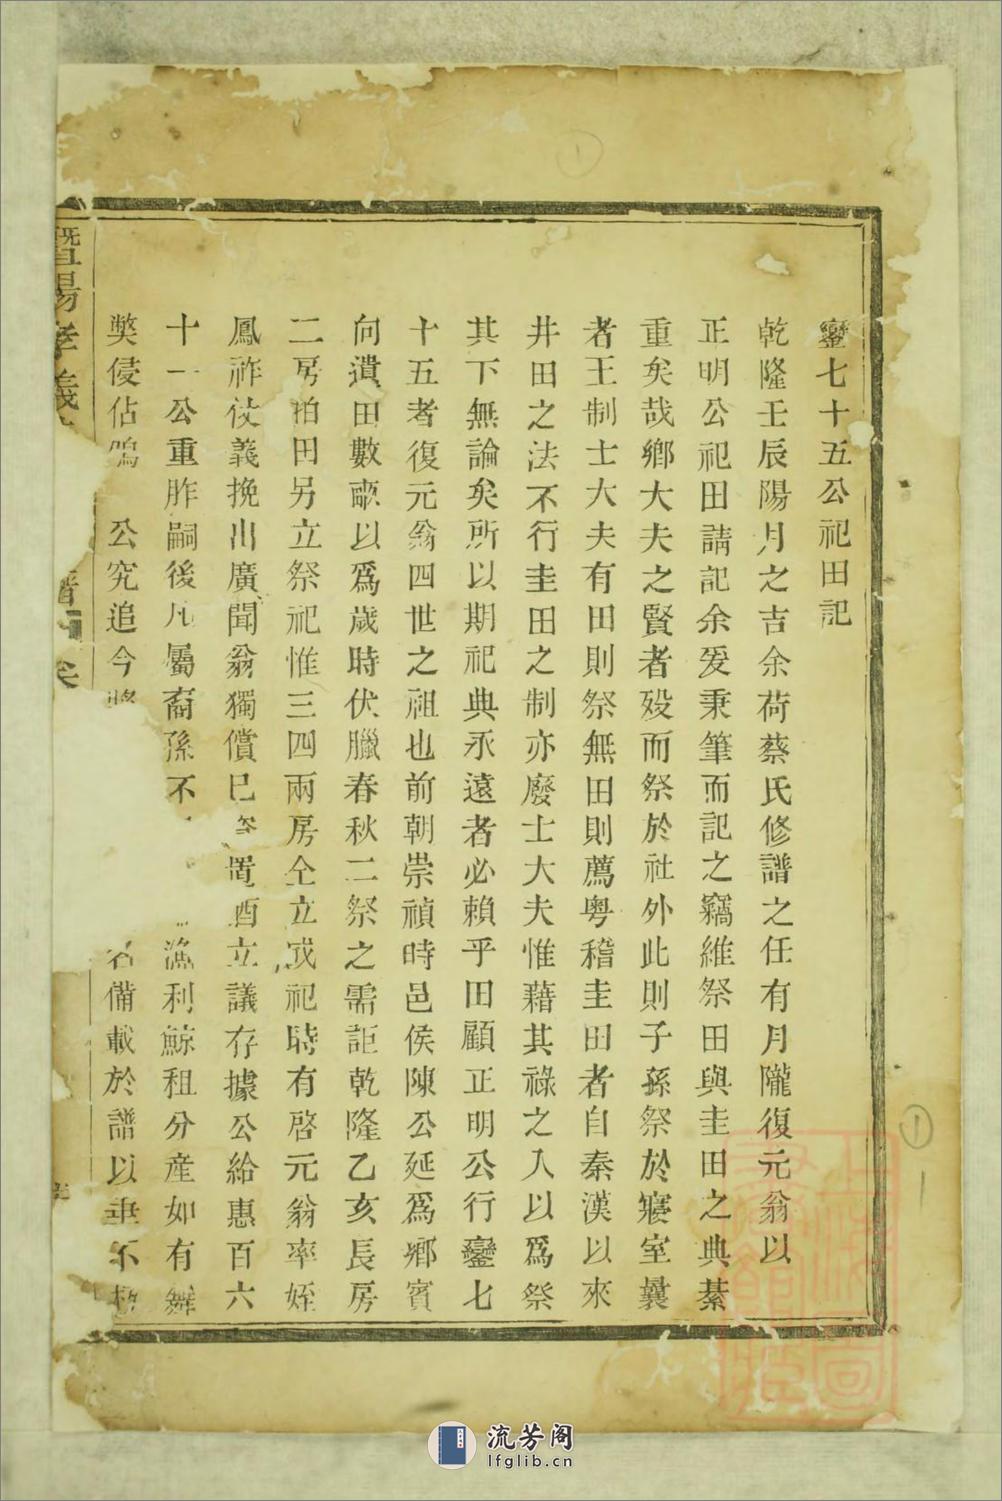 鑾七十五公祀田記
乾隆壬辰陽月之吉余荷蔡氏修譜之任有月隴復元翁以
正明公祀田請記余爰秉筆而記之竊維祭田與圭田之典綦
重矣哉鄉大夫之賢者歿而祭於社外此則子孫祭於寢室曩
者王制士大夫有田則祭無田則薦粵稽圭田者自秦漢以來
井田之法不行圭田之制亦廢士大夫惟藉其祿之入以為祭
其下無論矣所以期祀典永遠者必賴乎田顧正明公行鑾七
十五者復元翁四世之祖也前朝崇禎時邑侯陳公延爲鄉賓
向遺田數畝以爲歲時伏臘春秋二祭之需詎乾隆乙亥長房
二房拍田另立祭祀惟三四兩房仝立戎祀時有啓元翁率姪
鳳祚仗義挽出廣聞翁獨償巳 置酒立議存據公給惠百六
十一公重胙嗣後凡屬裔孫不 漁利鯨租分産如有舞
獘侵佔鳴 公究追今將 名備載於譜以垂不
暨陽孝義
譜
上海圖書館藏
① 
① 1
流芳阁
lfglib.cn